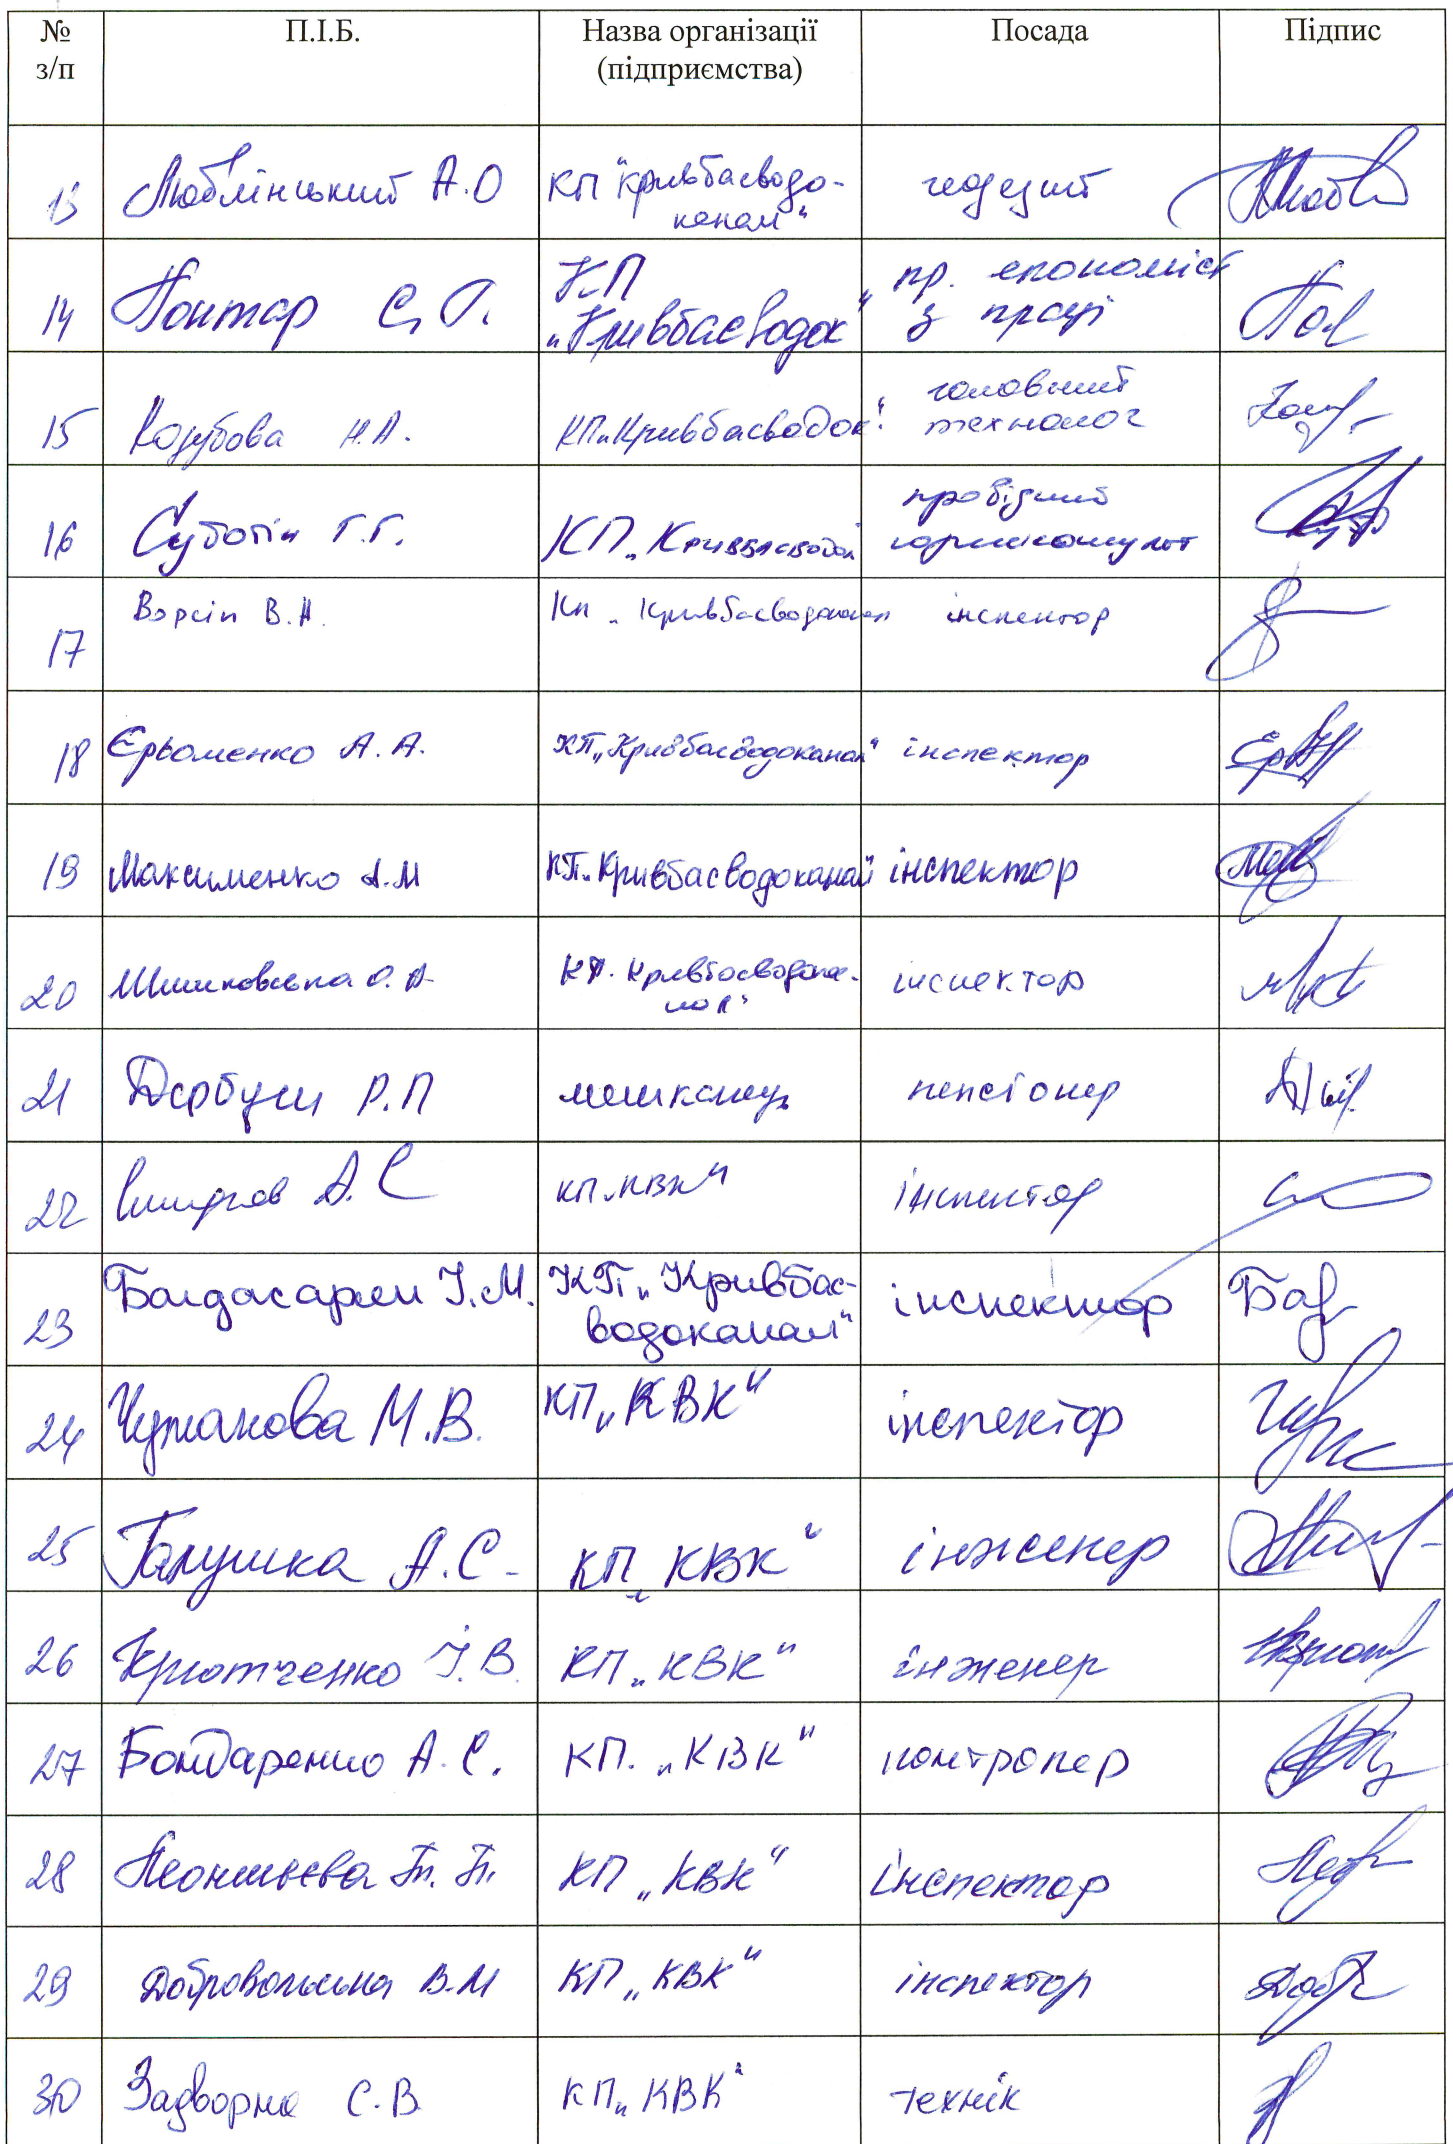 № з/п П.І.Б. Назва організації (підприємства) Посада Підпис
13 Люблінський А.О КП "Кривбасводо-канал" геодезист
14 Понтар С.П. КП "Кривбасводок" пр. економіст з праці
15 Козубова Н.А. КП "Кривбасводок." головний технолог
16 Суботін Г.Г. КП "Кривбасводок провідний юрисконсульт
17 Ворсін В.А. КП "Кривбасводоканал інспектор
18 Єрьоменко А.А. КП "Кривбасводоканал" інспектор
19 Максименко А.М КП "Кривбасводоканал" інспектор
20 Шишковська О.А КП. Кривбасводока-нал" інспектор
21 Дербуш Р.П мешканець пенсіонер
22 А.С КП "КВК" інспектор
23 Багдасарян І.М. КП "Кривбас-водоканал" інспектор Баг
24 Чумакова М.В. КП "КВК" інспектор
25 Галушка А.С. КП "КВК" інженер
26 Крютченко І.В. КП "КВК" інженер
27 Бондаренко А.С. КП. "КВК" контролер
28 Леонтьєва Т.Т. КП "КВК" інспектор
29 Добровольська В.М КП "КВК" інспектор
30 Задворна С.В КП "КВК" технік